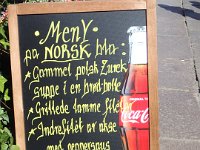 • MENY •
på NORSK bla:
* Gammel polsk Żurek
suppe i en brød potte
* Grillede lamme filet
* Indrefilet av okse
med peppersaus
Coca-Cola